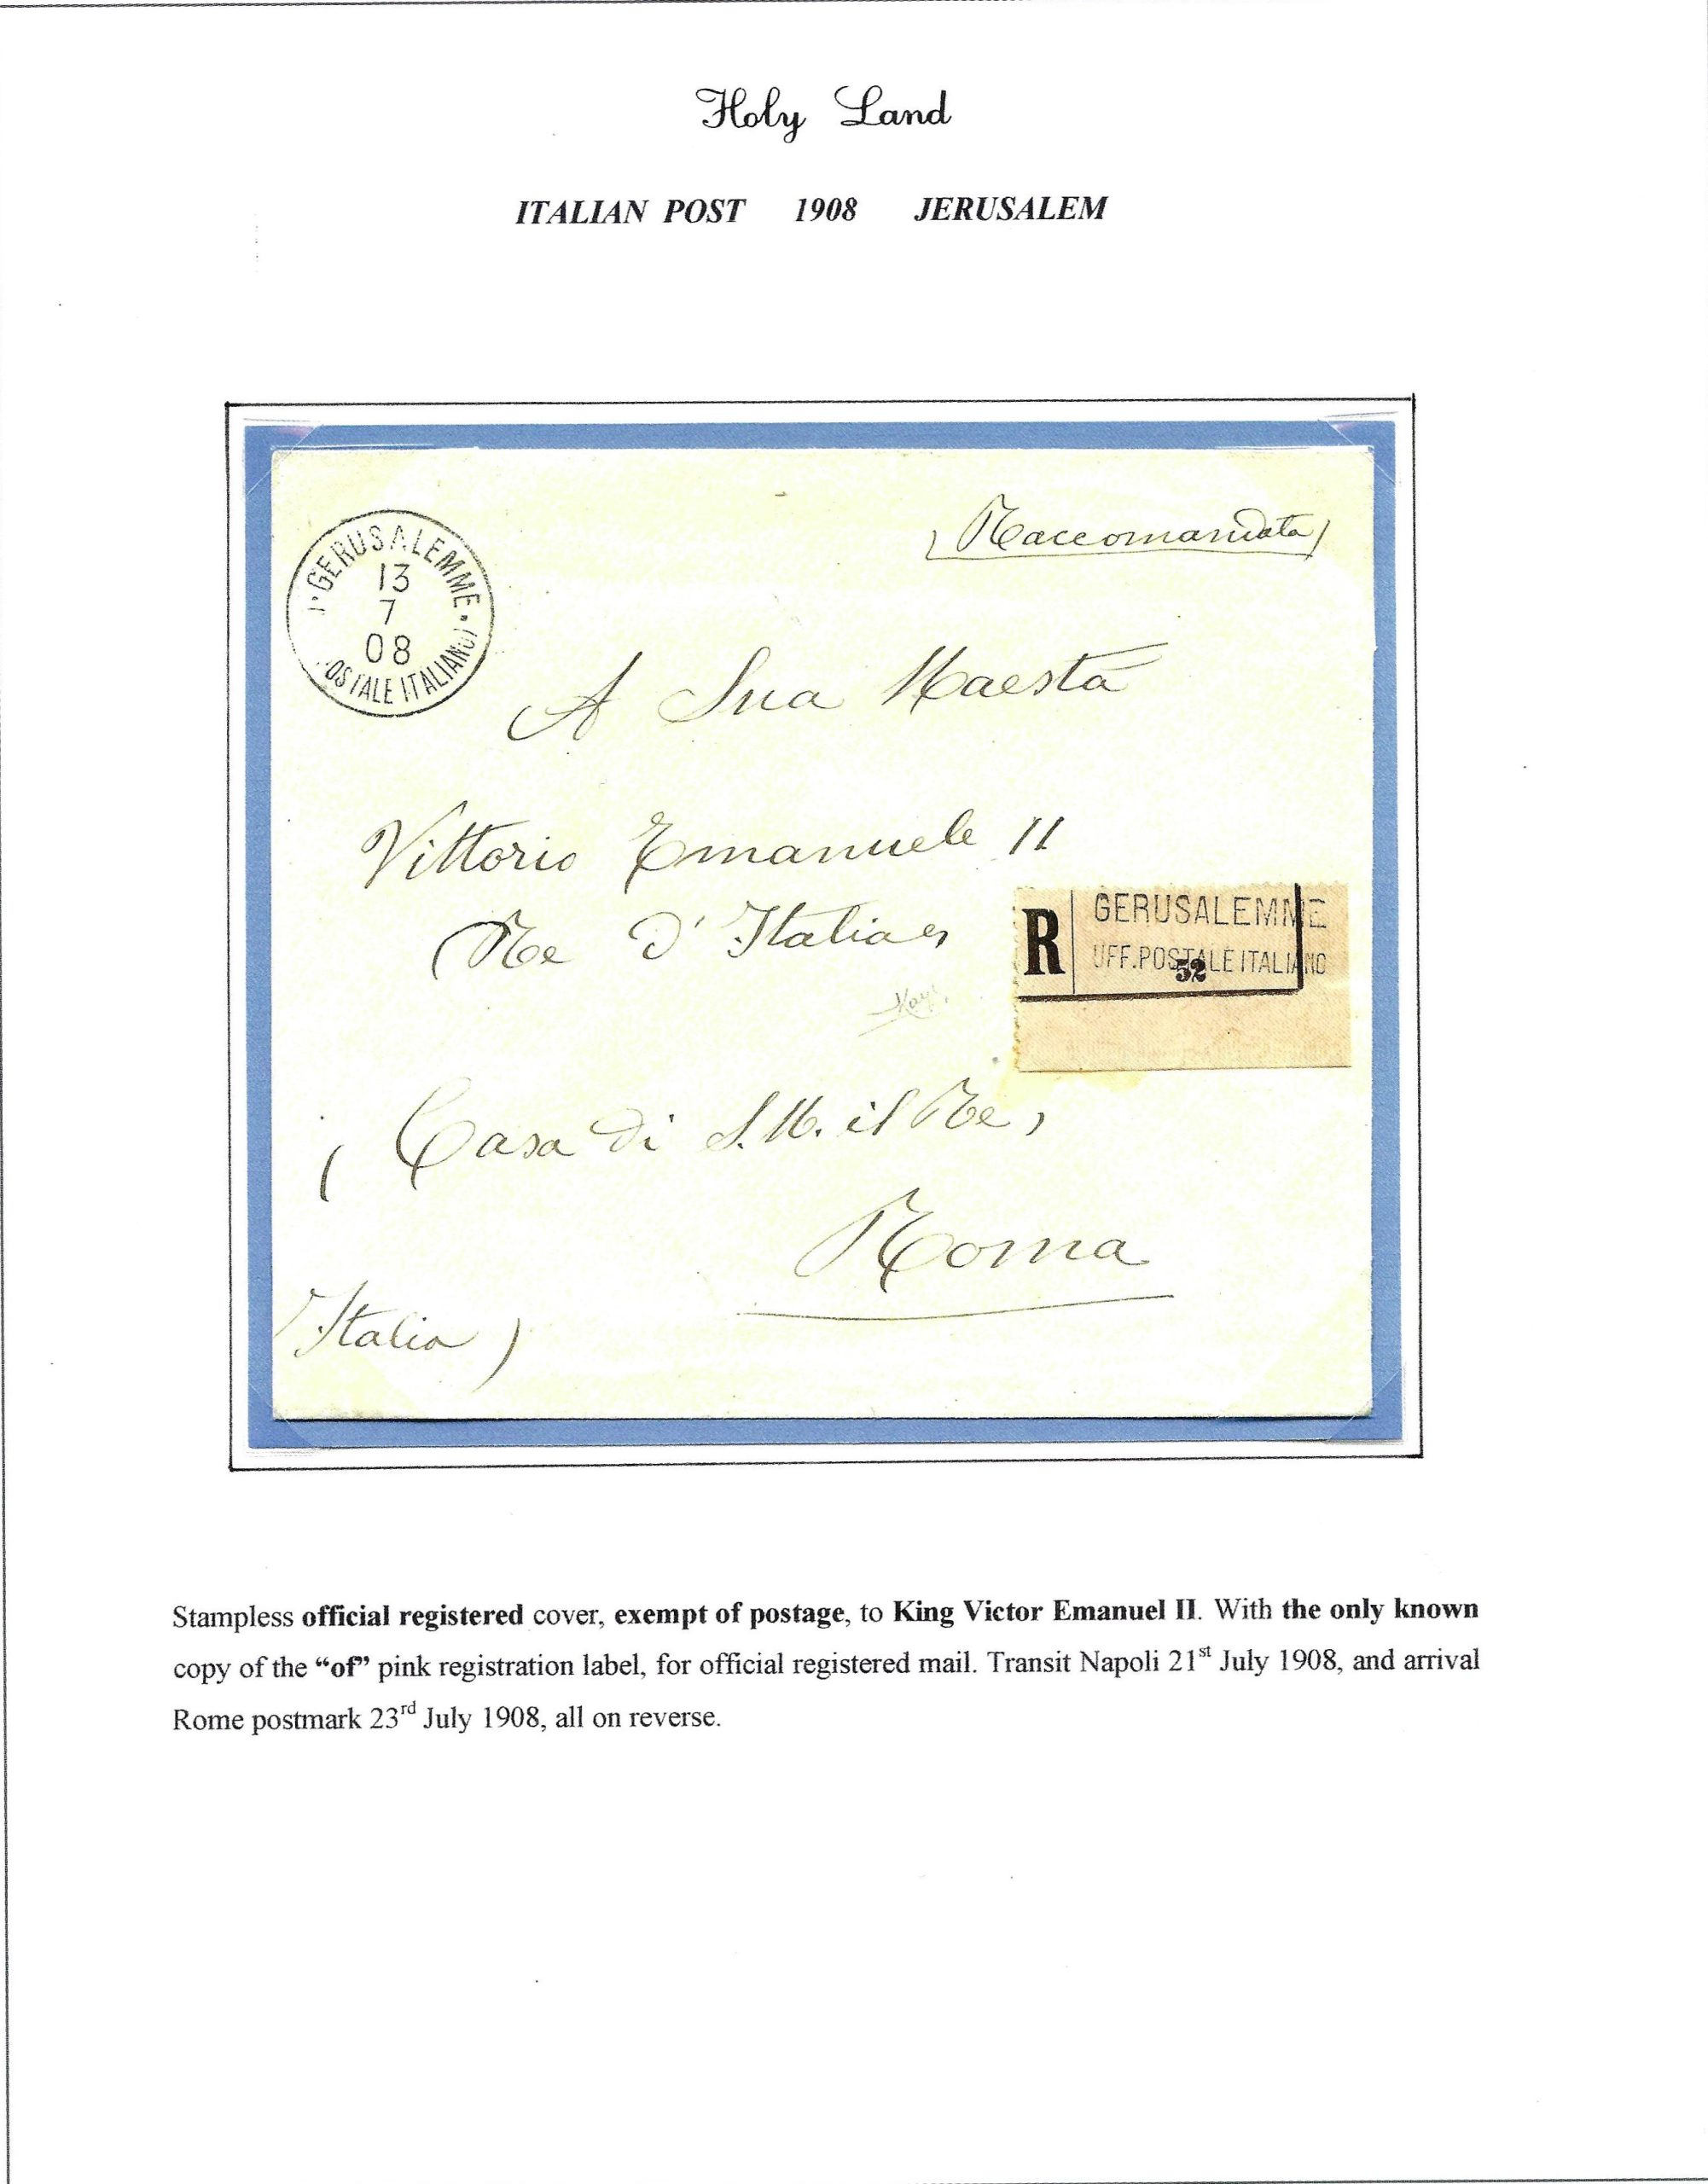 Holy Land
ITALIAN POST 1908 JERUSALEM
GERUSALEMME
13
7
08
OSTALE ITALIANO)
(Raccomandata)
A Sua Maestà
Vittorio Emanuele II
Re D'Italia
R
GERUSALEMME
UFF.POSTALE ITALIANO
52
(Casa di S.M. il Re,
Roma
Italia)
Stampless official registered cover, exempt of postage, to King Victor Emanuel II. With the only known
copy of the “of” pink registration label, for official registered mail. Transit Napoli 21st July 1908, and arrival
Rome postmark 23rd July 1908, all on reverse.